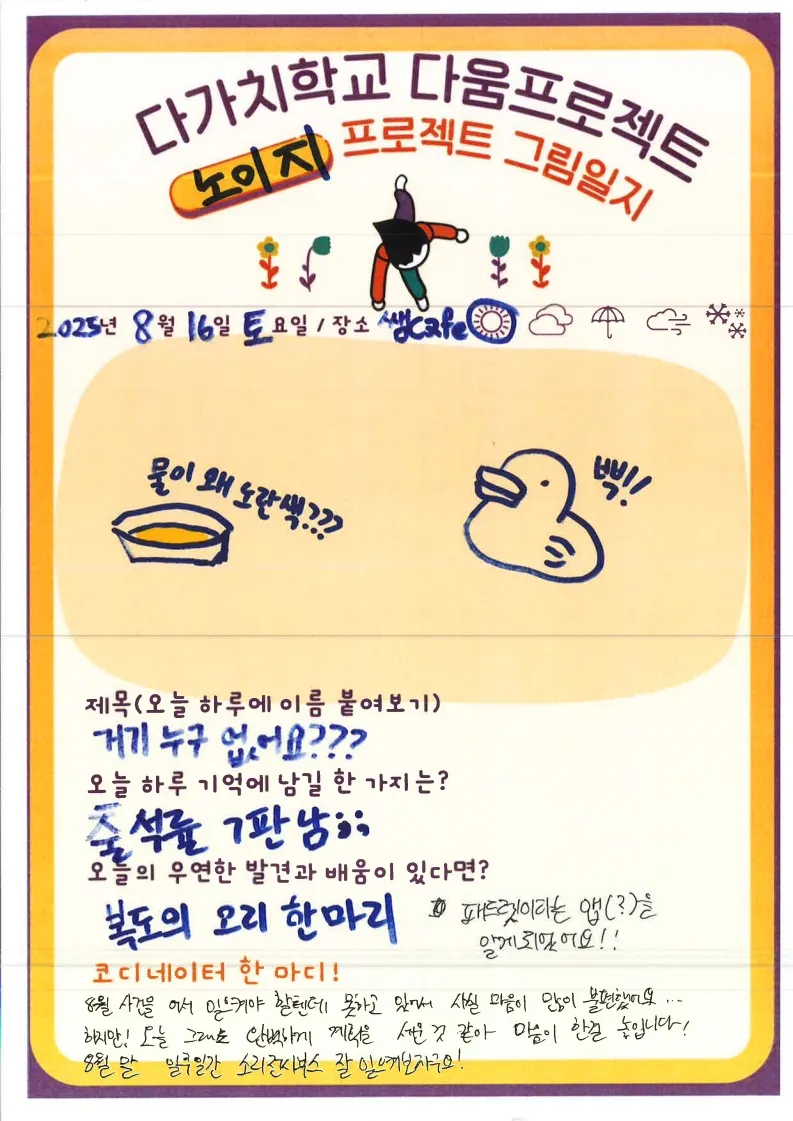 다가치학교 다움프로젝트
노이지 프로젝트 그림일지
2025년 8월 16일 토요일 / 장소 쌥Cafe
물이 왜 노란색???
삑!!
제목(오늘 하루에 이름 붙여보기)
거기 누구 없어요???
오늘 하루 기억에 남길 한 가지는?
출석률 7판남;;
오늘의 우연한 발견과 배움이 있다면?
복도의 오리 한마리
패드렛이라는 앱(?)을
알게되었어요!!
코디네이터 한 마디!
8월 사건을 어서 일으켜야 할텐데 못하고 있어서 사실 마음이 많이 불편했어요...
하지만! 오늘 그래도 완벽하게 계획을 세운 것 같아 마음이 한결 놓입니다!
8월 말 일주일간 소리전시부스 잘 일으켜보자구요!